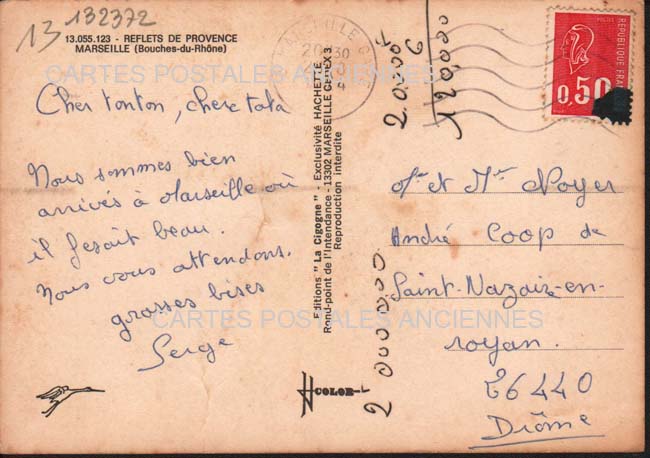 13 132372
13.055.123 - REFLETS DE PROVENCE
MARSEILLE (Bouches-du-Rhône)
CARTES POSTALES ANCIENNES
Cher tonton, chere tata
Nous sommes bien
arrivés à Marseille où
il fesait beau.
Nous vous attendons.
grosses bises
Serge
CARTES POSTALES ANCIENNES
Editions "La Cigogne" - Exclusivité HACHETTE
Rond-point de l'Intendance - 13302 MARSEILLE CEDEX 3
Reproduction interdite
COLOR
120,000
2 000 000
REPUBLIQUE FRAN
0,50
Mr et Me Noyer
André Coop de
Saint-Nazaire-en-
royan.
26440
Drôme